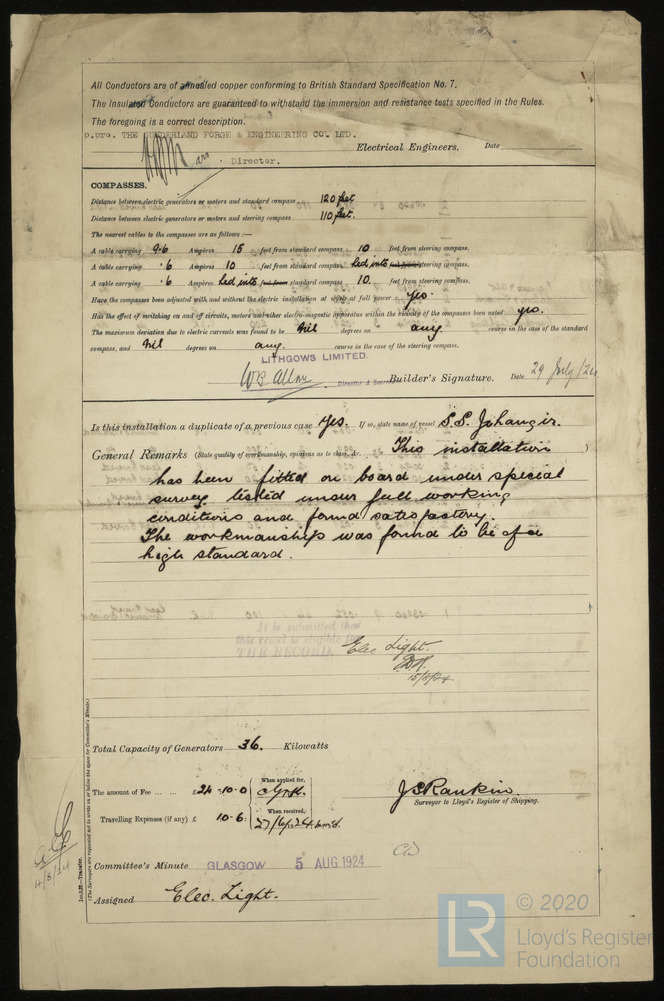 All Conductors are of annealed copper conforming to British Standard Specification No. 7.
The Insulated Conductors are guaranteed to withstand the immersion and resistance tests specified in the Rules.
The foregoing is a correct description.
p.pro. THE SUNDERLAND FORGE & ENGINEERING CO. LTD.
Electrical Engineers. Date
Director.
COMPASSES.
Distance between electric generators or motors and standard compass 120 feet
Distance between electric generators or motors and steering compass 110 feet.
The nearest cables to the compasses are as follows :—
A cable carrying 9.6 Ampères 15 feet from standard compass 10 feet from steering compass.
A cable carrying .6 Ampères 10 feet from standard compass led into feet from steering compass.
A cable carrying .6 Ampères led into feet from standard compass 10. feet from steering compass.
Have the compasses been adjusted with and without the electric installation at work at full power yes.
Has the effect of switching on and off circuits, motors and other electro-magnetic apparatus within the vicinity of the compasses been noted yes.
The maximum deviation due to electric currents was found to be Nil degrees on any course in the case of the standard
compass, and Nil degrees on any. course in the case of the steering compass.
LITHGOWS LIMITED.
Builder's Signature. Date 29 July/24
Is this installation a duplicate of a previous case Yes. If so, state name of vessel S.S. Jehangir.
General Remarks (State quality of workmanship, opinions as to class, &c. This installation
has been fitted on board under special
survey tested under full working
conditions and found satisfactory.
The workmanship was found to be of a
high standard.
It is submitted that
this vessel is eligible for
THE RECORD. Elec. Light.
15/8/24.
Total Capacity of Generators 36. Kilowatts
The amount of Fee ... ... £ 24 - 10 - 0 When applied for,
J S Rankin.
Surveyor to Lloyd's Register of Shipping.
Travelling Expenses (if any) £ 10 - 6. When received,
Committee's Minute GLASGOW 5 AUG 1924
Assigned Elec. Light.
(The Surveyors are requested not to write on or below the space for Committee's Minute.)
4/8/24
LR
© 2020
Lloyd's Register
Foundation